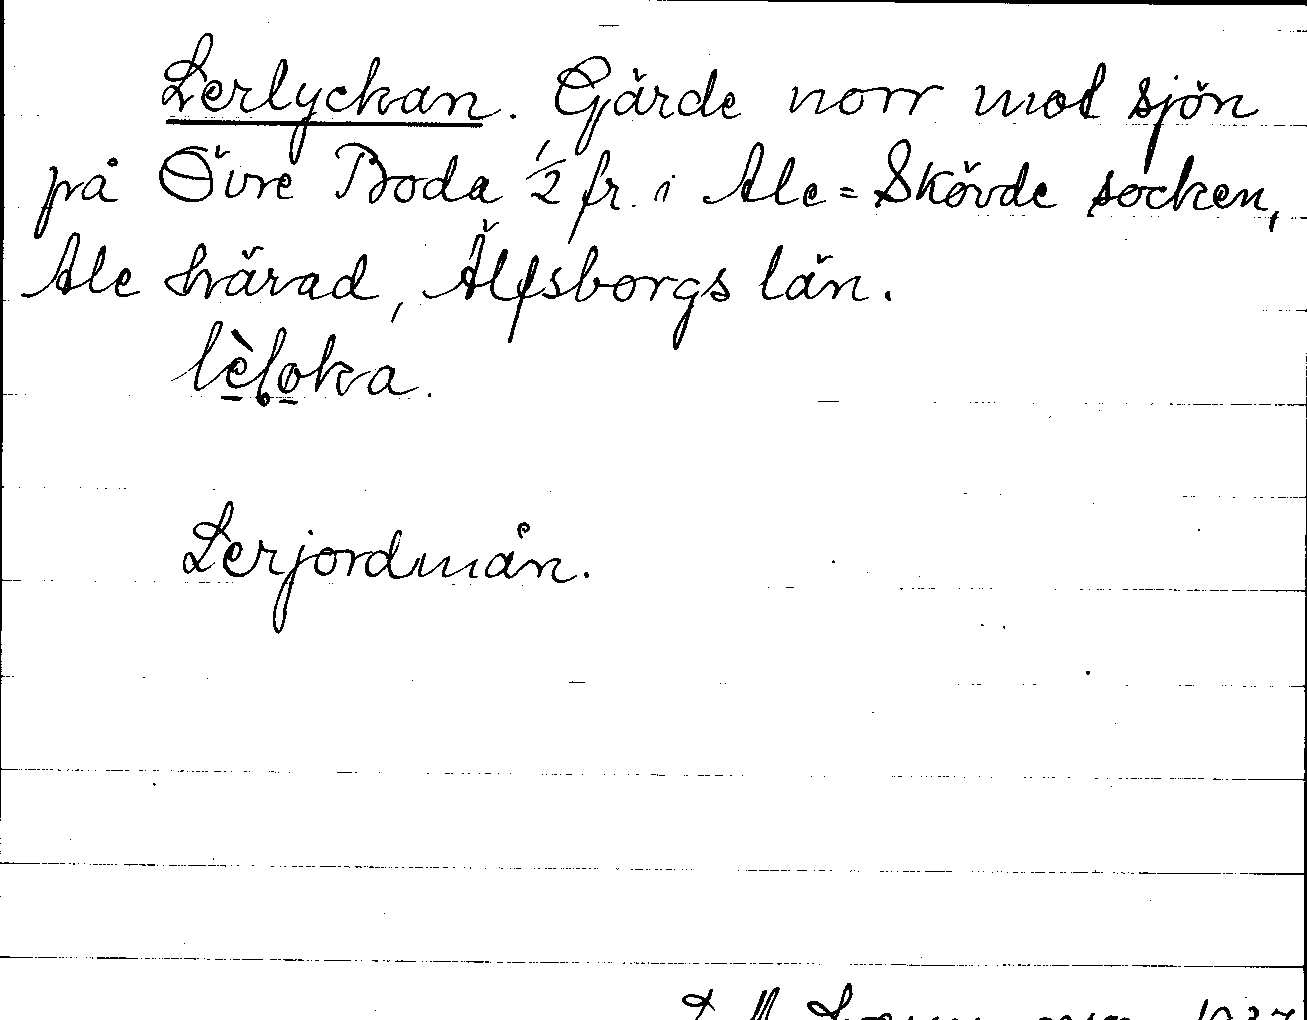 Lerlyckan. Gärde norr mot sjön
på Övre Boda 1/2 fr. i Ale=Skövde socken,
Ale härad, Älfsborgs län.
lèloka.
Lerjordmån.